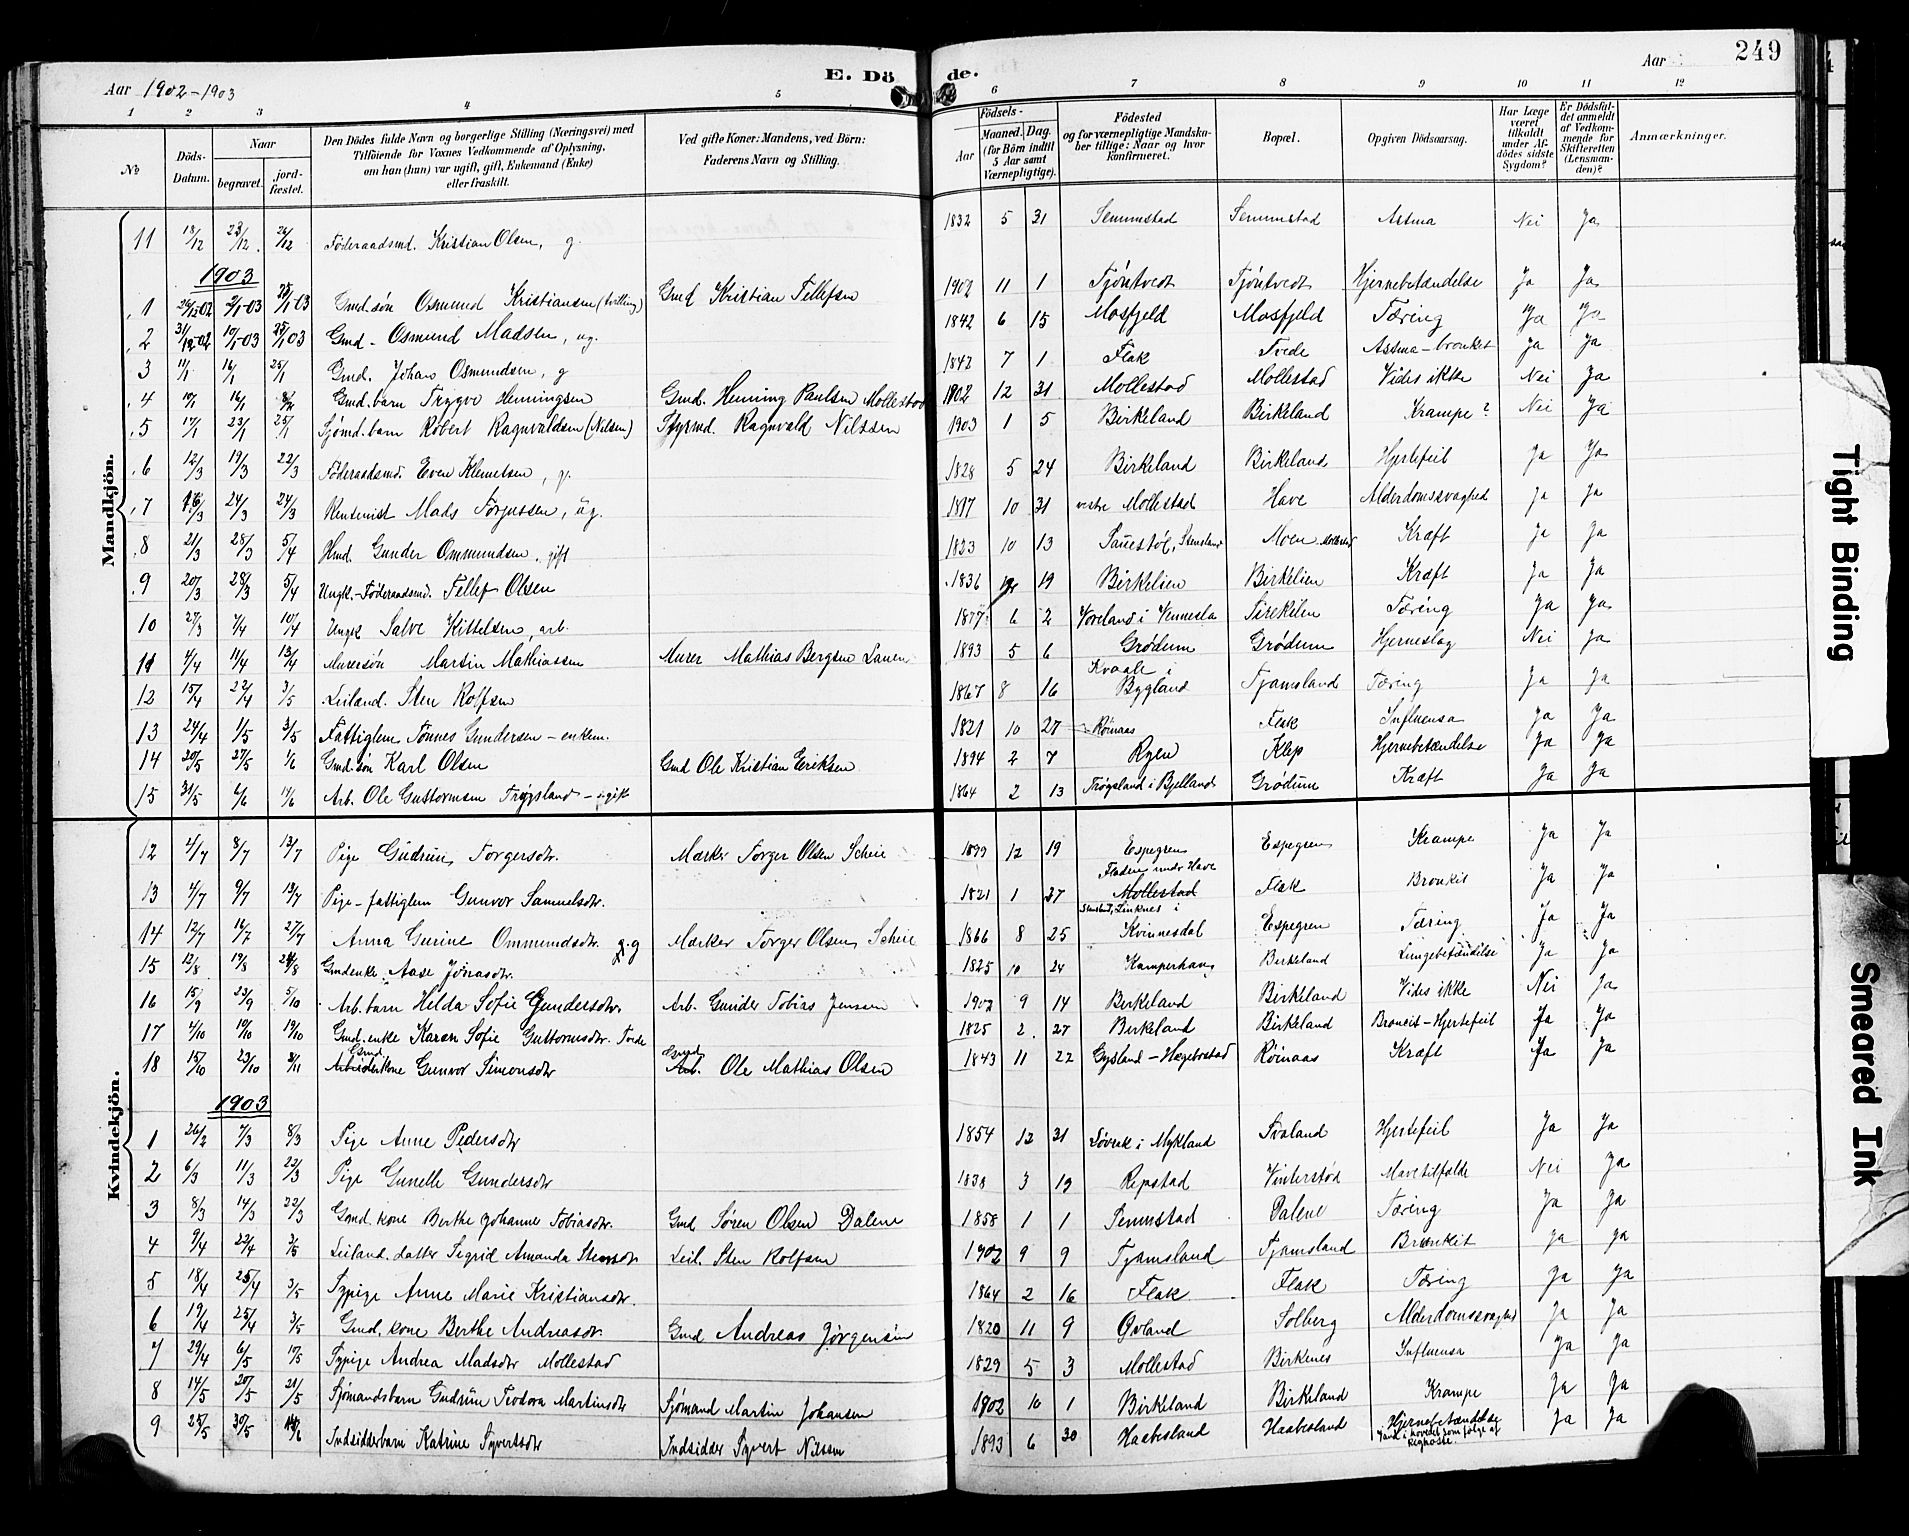 Aar 1902-1903
E. Dö de.
Aar
249
1 2 3 4 5 6 7 8 9 10 11 12
№
Döds-Datum.
Naar
begravet.
jord-fæstet.
Den Dödes fulde Navn og borgerlige Stilling (Næringsvei) med
Tilföiende for Voxnes Vedkommende af Oplysning,
om han (hun) var ugift, gift, Enkemand (Enke)
eller fraskilt.
Ved gifte Koner: Mandens, ved Börn:
Faderens Navn og Stilling.
Födsels-
Aar
Maaned. Dag.
(for Börn indtil
5 Aar samt
Værnepligtige).
Födested
og for værnepligtige Mandska-
ber tillige: Naar og hvor
konfirmeret.
Bopæl.
Opgiven Dödsaarsag.
Har Læge
været
tilkaldt
under Af-
dödes sidste
Sygdom?
Er Dödsfal-
det anmeldt
af Vedkom-
mende for
Skifteretten
(Lensman-
den)?
Anmærkninger.
Mandkjön.
11 18/12 23/12 26/12 Föderaadsmd. Kristian Olsen, g. 1832 5 31 Semmstad Semmstad Astma Nei Ja
1903
1 26/12-02 2/1-03 25/1-03 Gmd. søn Osmund Kristiansen (tvilling) Gmd Kristian Tellefsen 1902 11 1 Tjöntvedt Tjöntvedt Hjernebetændelse Ja Ja
2 31/12-02 10/1-03 25/1 03 Gmd - Osmund Madsen, ug. 1842 6 15 Mosfjeld Mosfjeld Tæring Ja Ja
3 11/1 16/1 25/1 Gmd. Johan Osmundsen, g 1842 7 1 Flak Tvede Astma - bronket Ja Ja
4 10/1 16/1 Gmd. barn Trygve Henningsen Gmd. Henning Paulsen Mollestad 1902 12 31 Mollestad Mollestad Vides ikke Nei Ja
5 17/1 23/1 25/1 Sjömd. barn Robert Ragnvaldsen (Nilsen) Styrmd. Ragnvald Nilssen 1903 1 5 Birkeland Birkeland Krampe? Nei Ja
6 12/3 19/3 22/3 Föderaadsmd. Even Klemetsen, g. 1828 5 24 Birkeland Birkeland Hjertefeil Ja Ja
7 16/3 24/3 24/3 Rentenist Mads Torjussen, ug. 1817 10 31 vestre Mollestad Have Alderdomssvaghed Ja Ja
8 21/3 28/3 5/4 Hmd. Gunder Ommundsen, gift 1823 10 13 Sauestöl, Stensland Moen Mollestad Kræft Ja Ja
9 20/3 28/3 5/4 Ungk.-Föderaadsmd. Tellef Olsen 1836 12 19 Birkelien Birkelien Kræft Ja Ja
10 27/3 7/4 10/4 Ungk Salve Kittelsen, arb. 1877 6 2 Voreland i Vennesla Sirekilen Tæring Ja Ja
11 4/4 11/4 13/4 Murersön Martin Mathiassen Murer Mathias Bergsen Lauen 1893 5 6 Grødum Grødum Hjerneslag Nei Ja
12 15/4 22/4 3/5 Leiland. Sten Rolfsen 1867 8 16 Kvaale i Bygland Tjamsland Tæring Ja Ja
13 24/4 1/5 3/5 Fattiglem Tönnes Gundersen - enkem. 1821 10 27 Röinaas Flak Influensa Ja Ja
14 20/5 27/5 1/6 Gmd. søn Karl Olsen Gmd Ole Kristian Eriksen 1894 2 7 Ryen Klep Hjernebetændelse Ja Ja
15 31/5 6/6 14/6 Arb. Ole Guttormsen Trøgsland - ugift 1864 2 13 Trøgsland i Bjelland Grødum Kræft Ja Ja
Kvindekjön.
12 4/7 8/7 13/7 Pige Gudrun Torgersdtr. Marker Torger Olsen Scheie 1899 12 19 Espegren Espegren Krampe Ja Ja
13 4/7 9/7 13/7 Pige - fattiglem Gunvor Samuelsdtr. 1821 1 27 Fladen under Have Mollestad Flak Bronkit Ja Ja
14 12/7 16/7 27/7 Anna Gurine Ommundsdtr. g Marker Torger Olsen Scheie 1866 8 25 Linknes i Kvinnesdal Espegren Tæring Ja Ja
15 12/8 19/8 24/8 Gmdenke Aase Jonasdtr. 1825 10 24 Kamperhaug Birkeland Lungebetændelse Ja Ja
16 15/9 23/9 5/10 Arb. barn Helda Sofie Gundersdtr. Arb. Gunder Tobias Jensen 1902 9 14 Birkeland Birkeland Vides ikke Nei Ja
17 4/10 10/10 19/10 Gmd. enke Karen Sofie Guttormsdtr. Tvede 1825 2 27 Birkeland Birkeland Broncit - Hjertefeil Ja Ja
18 15/10 23/10 8/11 Gmd Arbeiderkone Gunvor Simonsdtr Gmd Arb. Ole Mathias Olsen 1843 11 22 Gysland - Hægebostad Røinaas Kræft Ja Ja
1903
1 26/2 7/3 8/3 Pige Anne Pedersdtr 1854 12 31 Løvrek i Mykland Svaland Hjertefeil Ja Ja
2 6/3 11/3 22/3 Pige Gunelle Gundersdtr 1838 3 19 Repstad Vinterstød Mavetilfælde Nei Ja
3 8/3 14/3 22/3 Gmd. kone Berthe Johanne Tobiasdtr. Gmd Søren Olsen Dalene 1858 1 1 Semmstad Dalene Tæring Ja Ja
4 9/4 22/4 3/5 Leiland. datter Sigrid Amanda Stensdtr Leil. Sten Rolfsen 1902 9 9 Tjamsland Tjamsland Bronkit Ja Ja
5 18/4 25/4 3/5 Sypige Anne Marie Kristiansdtr. 1864 2 16 Flak Flak Tæring Ja Ja
6 19/4 25/4 3/5 Gmd. kone Berthe Andreasdtr. Gmd Andreas Jørgensen 1820 11 9 Øvland Solberg Alderdomssvaghed Ja Ja
7 29/4 6/5 17/5 Sypige Andrea Madsdtr Mollestad 1829 5 3 Mollestad Birkenes Influensa Ja Ja
8 14/5 20/5 21/5 Sjömandsbarn Gudrun Teodora Martinsdtr Sjömand Martin Johansen 1902 10 1 Birkeland Birkeland Krampe Ja Ja
9 25/5 30/5 14/6 Indsidderbarn Katrine Syvertsdtr Indsidder Syvert Nilssen 1893 6 30 Haabesland Haabesland Hjernebetændelse Vand i hovedet som følge af Kighoste. Ja Ja
Tight Binding
Smeared Ink